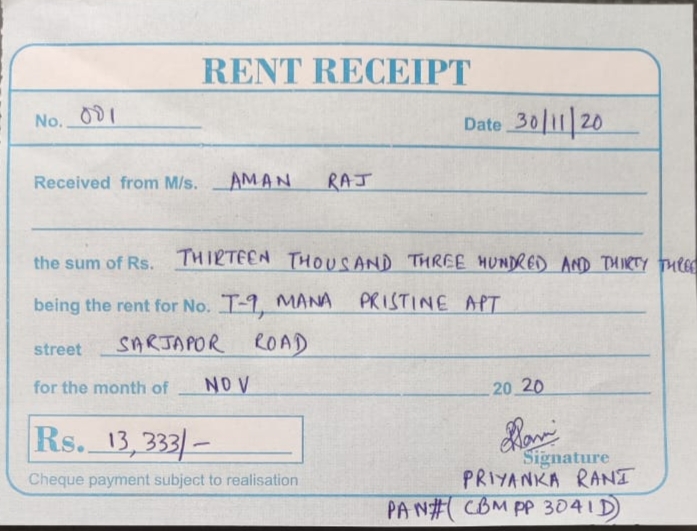 RENT RECEIPT
No. 001 Date 30/11/20
Received from M/s. AMAN RAJ
the sum of Rs. THIRTEEN THOUSAND THREE HUNDRED AND THIRTY THREE
being the rent for No. T-9, MANA PRISTINE APT
street SARJAPOR ROAD
for the month of NOV 20 20
Rs. 13,333/-
Signature
Cheque payment subject to realisation
PRIYANKA RANI
PAN#( CBMPP3041D)